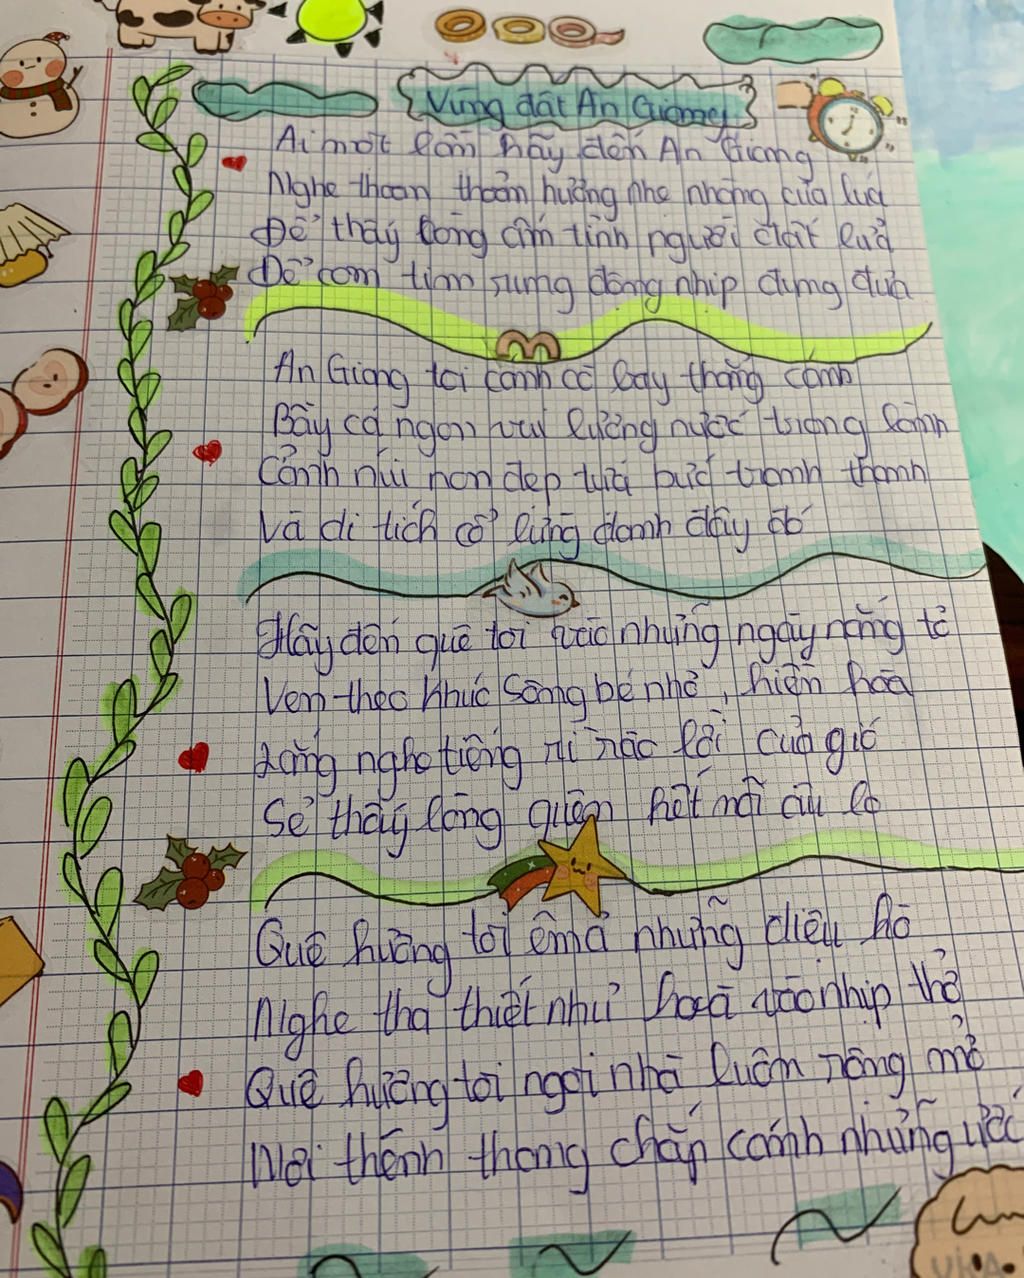 Vùng đất An Giang
Ai một lần hãy đến An Giang
Nghe thoan thoản hương nhẹ nhàng của lúa
Để thấy lòng ấm tình người đất lửa
Để con tim rung động nhịp đung đưa
An Giang tôi cánh cò bay thẳng cánh
Bầy cá ngon vui luồng nước trong lành
Cảnh núi non đẹp tựa bức tranh thanh
Và di tích cổ lừng danh đầy đó
Hãy đến quê tôi vào những ngày nắng tỏ
Ven theo khúc sông bé nhỏ, hiền hòa
Lắng nghe tiếng rì rào lời của gió
Sẽ thấy lòng quên hết mỗi âu lo
Quê hương tôi êm ả những điệu hò
Nghe tha thiết như hoà vào nhịp thở
Quê hương tôi ngôi nhà luôn rộng mở
Nơi thênh thang chắp cánh những ước